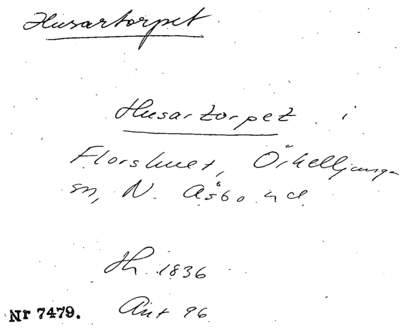 Husartorpet
Husartorpet i
Florshult, Örkelljunga
sn, N. Åsbo hd
Hh. 1836
Ant 96
Nr 7479.